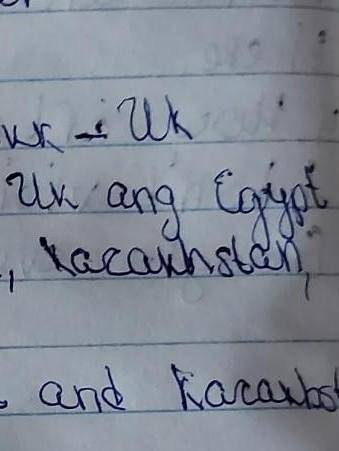 - Uk
Uk ang Egypt
, Kazakhstan,
and Kazakhst